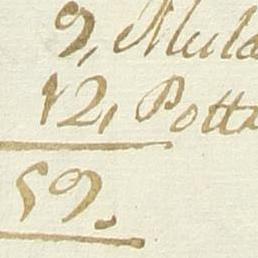 9, Mula
12, Potta
59.